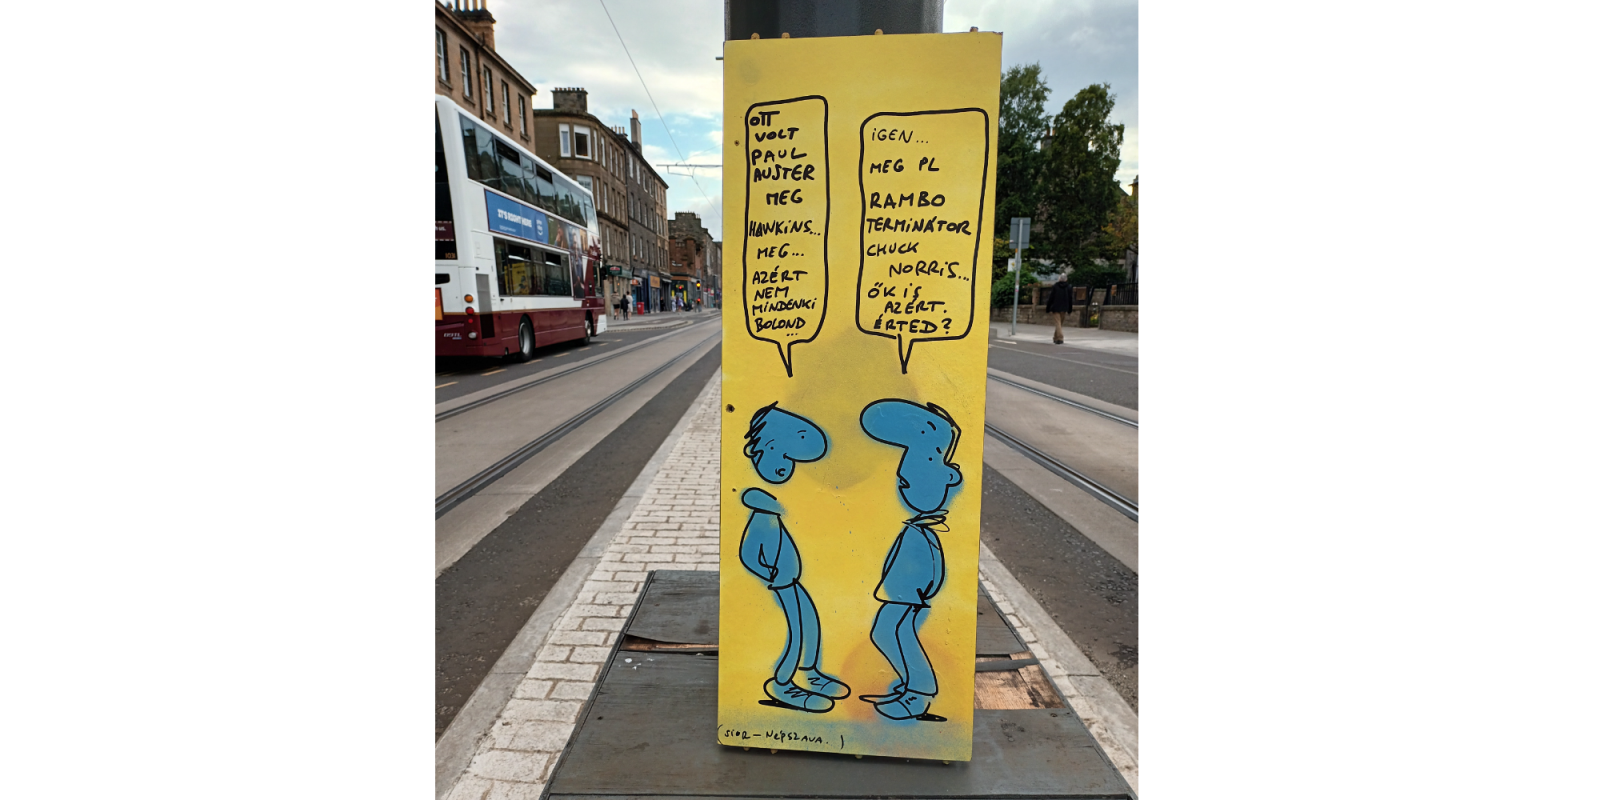 OTT
VOLT
PAUL
AUSTER
MEG
HAWKINS...
MEG...
AZÉRT
NEM
MINDENKI
BOLOND...
IGEN...
MEG PL
RAMBO
TERMINÁTOR
CHUCK
NORRIS...
ŐK IS
AZÉRT.
ÉRTED?
NÉPSZAVA.)